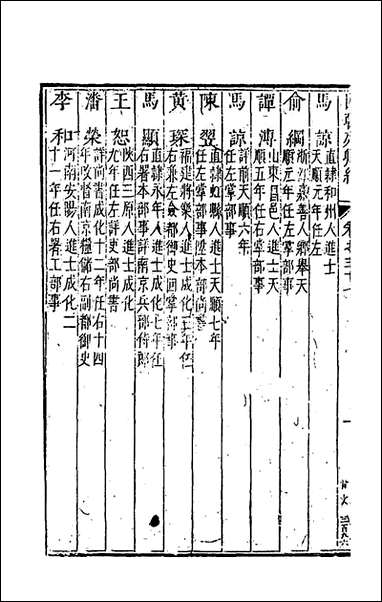 馬諒 直隸和州人進士
天順元年任左
俞綱 浙江嘉善人鄉舉天
順元年任左掌部事
譚溥 山東昌邑人進士天
順五年任右掌部事
馬諒 詳前天順六年
任左掌部事
陳翌 直隸虹縣人進士天順七年
任左掌部事陞本部尚書
黃琛 福建將樂人進士成化三年任
右兼左僉都御史回掌部事
馬顯 直隸永年人進士成化七年任
右署本部事詳南京兵部侍郎
王恕 陝西三原人進士成化
九年任左詳吏部尚書
潘榮 詳尚書成化十二年任右十四
年改督南京糧儲右副都御史
李和 河南安陽人進士成化二
十一年任右署工部事